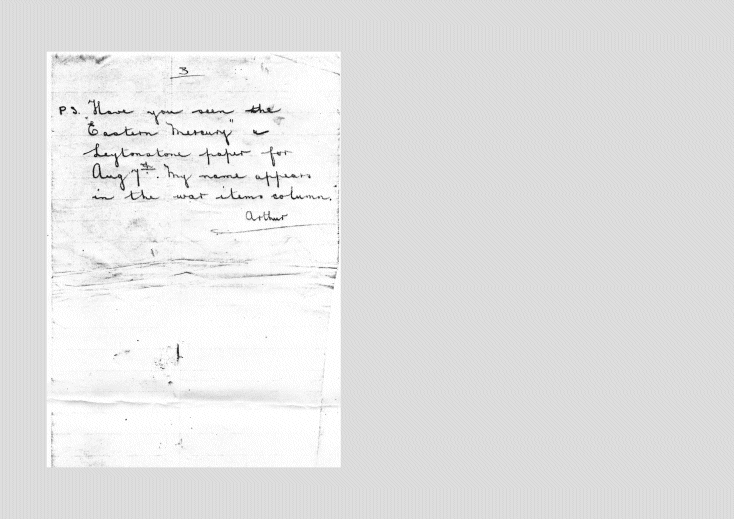 3
P.S. Have you seen the
"Eastern Mercury" a
Leytonstone paper for
Aug 7th. My name appears
in the war items column.
Arthur